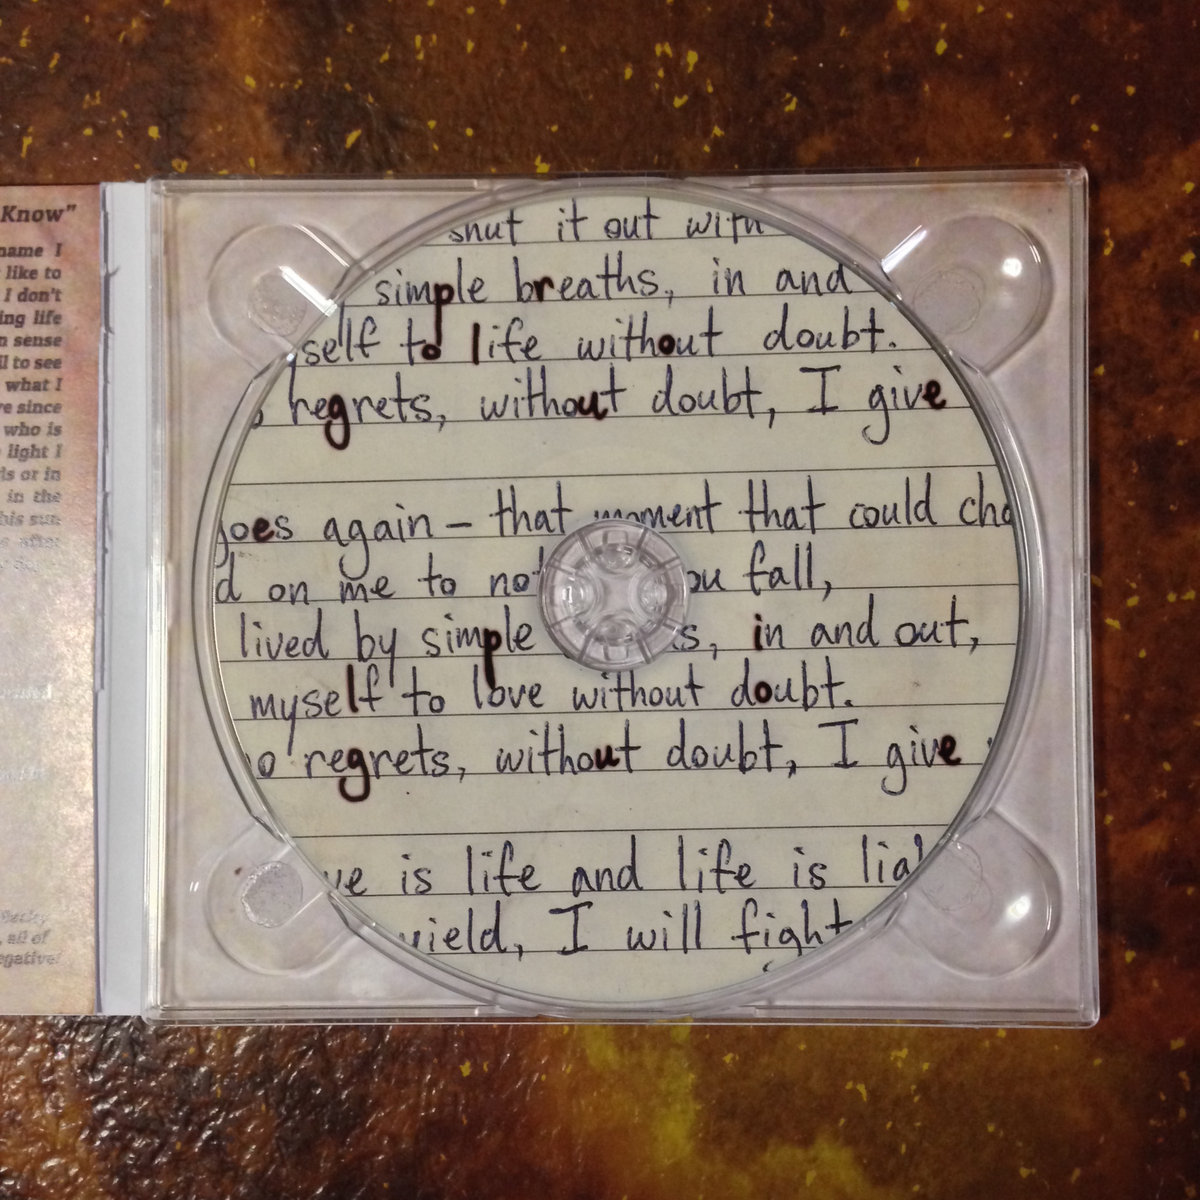 Know"
name I
like to
I don't
ing life
n sense
ll to see
what I
ve since
who is
light I
ds or in
in the
his sun
after
all of
negative/
shut it out with
simple breaths, in and
self to life without doubt.
regrets, without doubt, I give
goes again - that moment that could cha
d on me to not ou fall,
lived by simple s, in and out,
myself to love without doubt.
o regrets, without doubt, I give
ve is life and life is lia
yield, I will fight